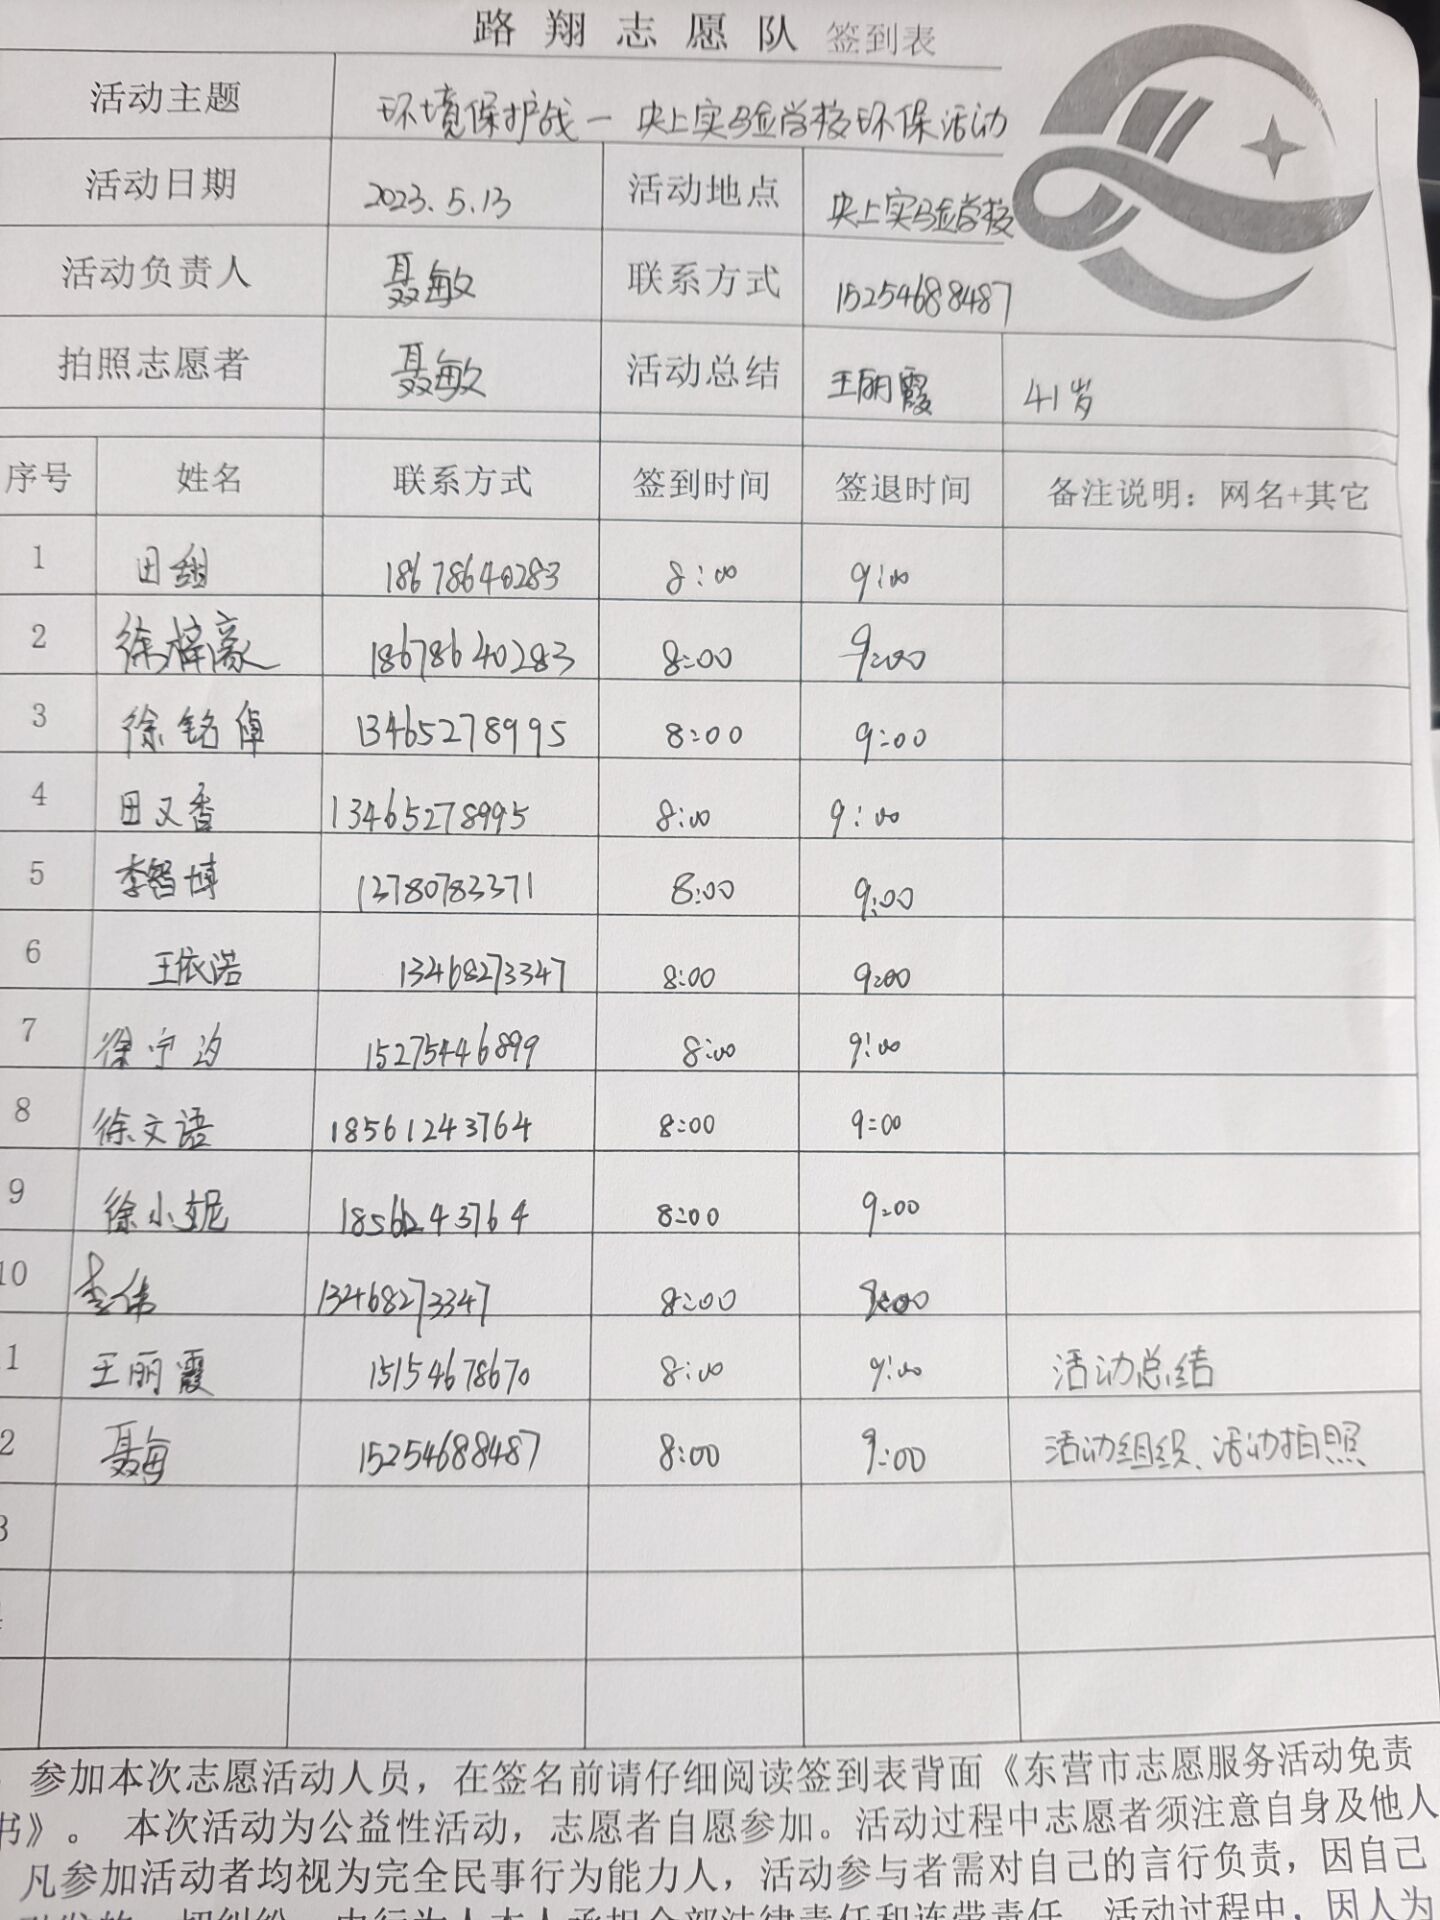 路翔志愿队 签到表
活动主题 环境保护战一央上实验学校环保活动
活动日期 2023.5.13 活动地点 央上实验学校
活动负责人 聂敏 联系方式 15254688487
拍照志愿者 聂敏 活动总结 王丽霞 41岁
序号 姓名 联系方式 签到时间 签退时间 备注说明：网名+其它
1 田甜 18678640283 8:00 9:00
2 徐梓豪 18678640283 8:00 9:00
3 徐铭倬 13465278995 8:00 9:00
4 田又香 13465278995 8:00 9:00
5 李智博 13780783371 8:00 9:00
6 王依诺 13468273347 8:00 9:00
7 徐宁汐 15275446899 8:00 9:00
8 徐文语 18561243764 8:00 9:00
9 徐小妮 18561243764 8:00 9:00
10 李伟 13468273347 8:00 9:00
1 王丽霞 15154678670 8:00 9:00 活动总结
2 聂每 15254688487 8:00 9:00 活动组织、活动拍照
3
参加本次志愿活动人员，在签名前请仔细阅读签到表背面《东营市志愿服务活动免责
书》。 本次活动为公益性活动，志愿者自愿参加。活动过程中志愿者须注意自身及他人
凡参加活动者均视为完全民事行为能力人，活动参与者需对自己的言行负责，因自己
一切纠纷，由行为人本人承担全部法律责任和连带责任。活动过程中，因人为